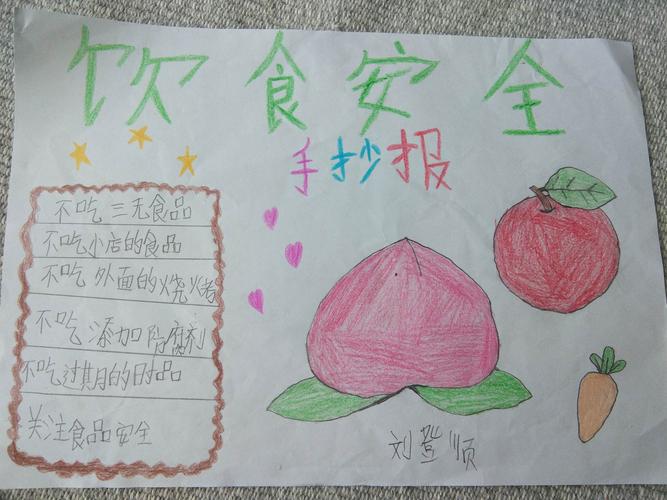 饮食安全
手抄报
不吃三无食品
不吃小店的食品
不吃外面的烧烤
不吃添加防腐剂
不吃过期的日品
关注食品安全
刘登顺